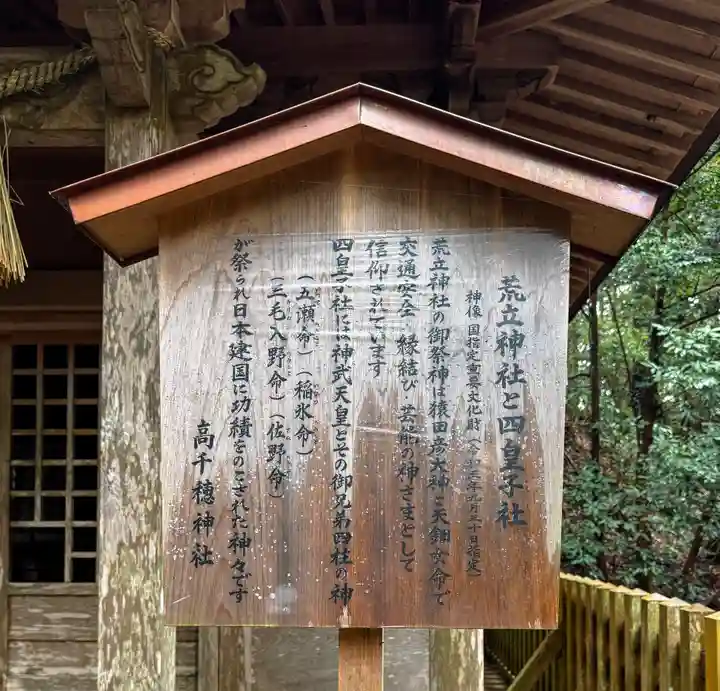 荒立神社と四皇子社
神像 国指定重要文化財(令和二年九月三十日指定)
荒立神社の御祭神は猿田彦大神と天鈿女命で
交通安全・縁結び・芸能の神さまとして
信仰されています
四皇子社には神武天皇とその御兄弟四柱の神
(五瀬命)(稲氷命)
(三毛入野命)(佐野命)
が祭られ日本建国に功績をのこされた神々です
高千穂神社